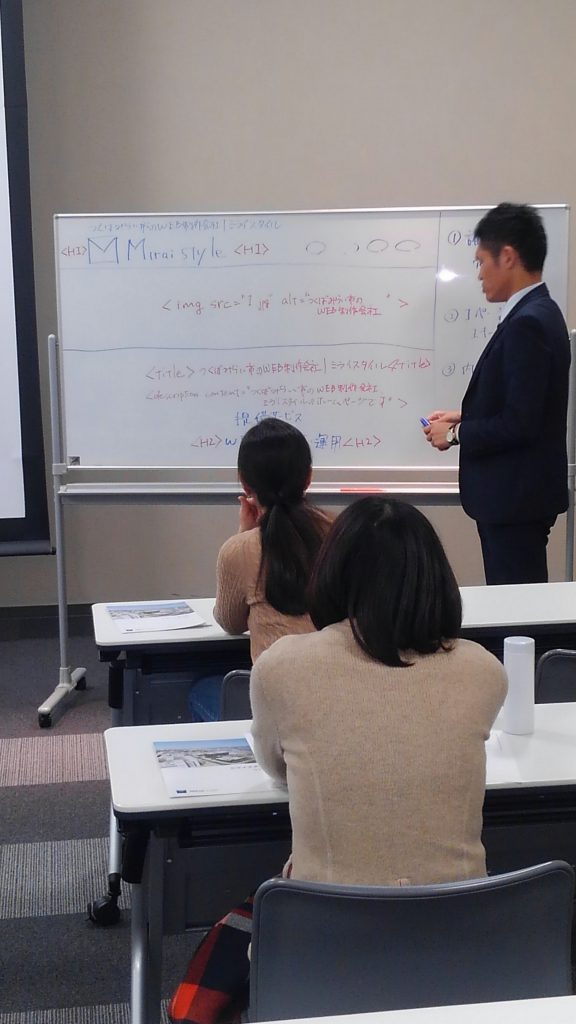 つくばみらい市のWEB制作会社|ミライスタイル
<H1> M Mirai style <H1>
<img src="1.jpg" alt="つくばみらい市の
WEB制作会社" >
<title> つくばみらい市のWEB制作会社|ミライスタイル</title>
<description content="つくばみらい市のWEB制作会社
ミライスタイルのホームページです" >
提供サービス
<H2> W 運用 <H2>
①
②
③